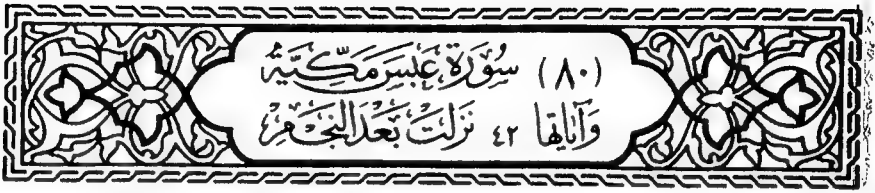 (٨٠) سُورَة عَبَسَ مَكِّيَّة
وَآيَاتِهَا ٤٢ نَزَلَتْ بَعْدَ النَّجْمِ